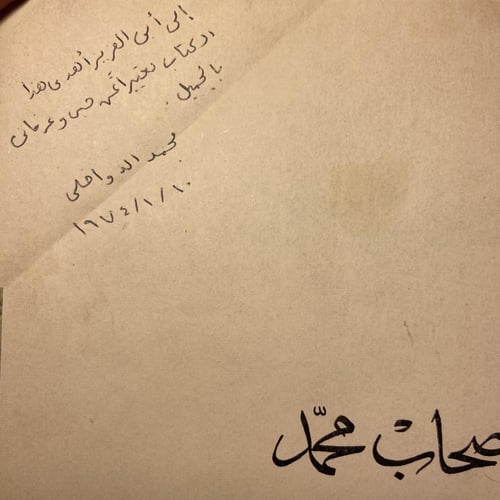 إلى أبي العزيز أهدى هذا
الكتاب تعبيراً عن حبى وعرفانى
بالجميل.
محمد الدواخلى
١٩٧٤/١/١٠
صحاب محمّد